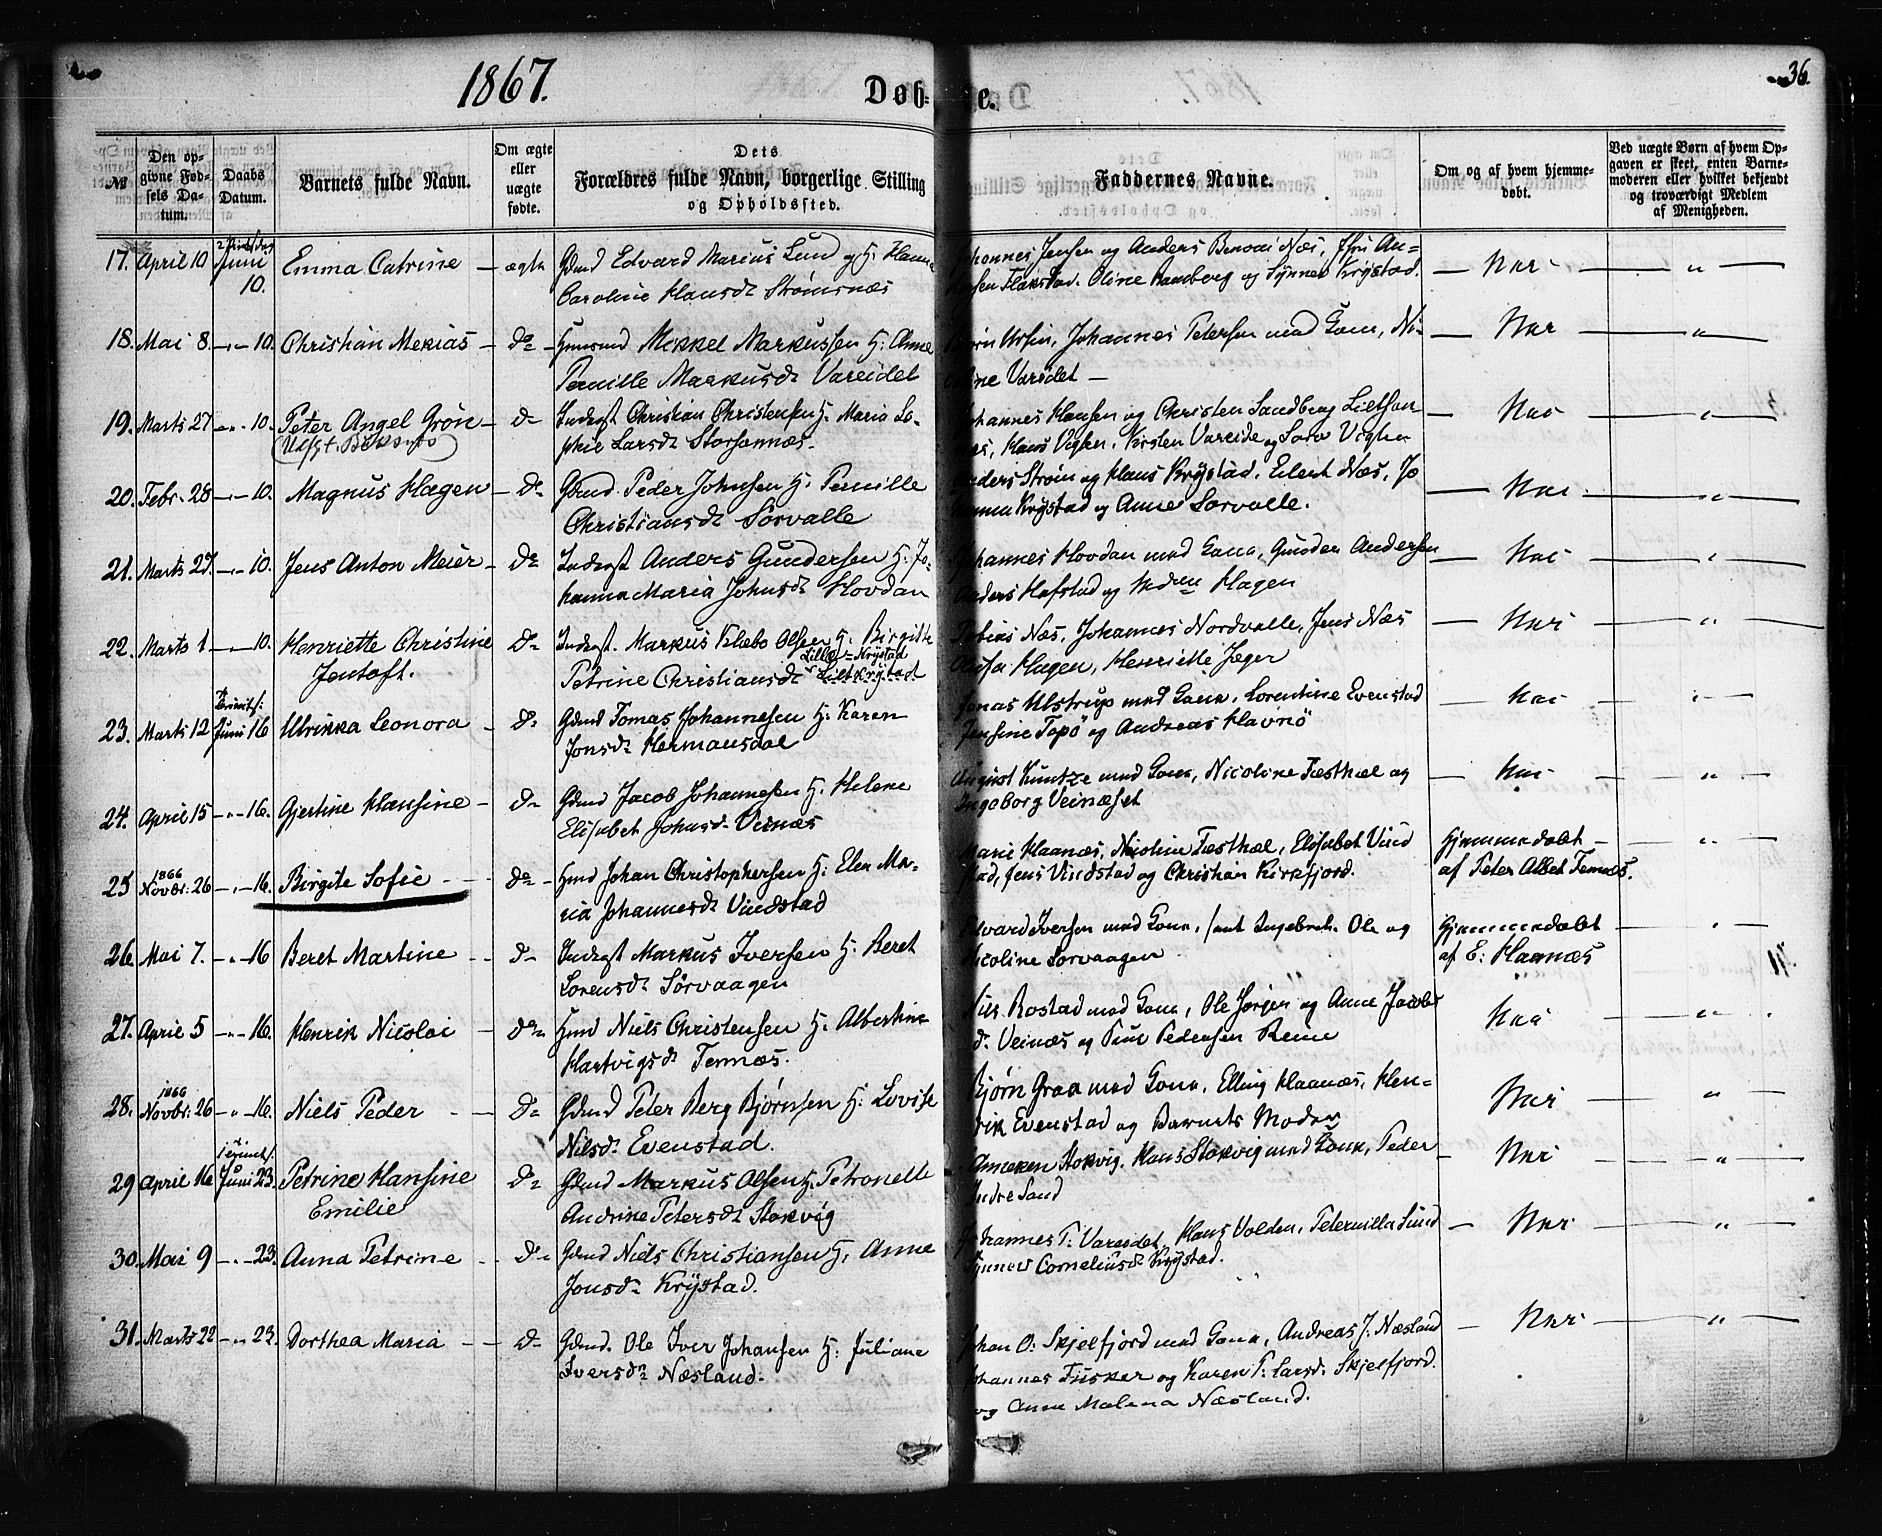 1867.
Døb-
te.
36.
№
Den op-
givne Fød-
sels Da-
tum.
Daabs
Datum.
Barnets fulde Navn.
Om ægte
eller
uægte
fødte.
Dets
Forældres fulde Navn, borgerlige Stilling
og Opholdssted.
Faddernes Navne.
Om og af hvem hjemme-
døbt.
Ved uægte Børn af hvem Op-
gaven er skeet, enten Barne-
moderen eller hvilket bekjendt
og troværdigt Medlem
af Menigheden.
17. April 10 Juni 10. Emma Catrine — ægte Gdmd Edvard Marius Lund og H. Hanna
Caroline Hansd. Strømsnæs
Johannes Jensen og Anders Næs,
Flakstad. Oline Sandberg og Synnev Krystad. — Nei — "
18. Mai 8. —"— 10. Christian Mekias — Do — Mekkel Markussen H. Anne
Pernille Markusd. Vareidet
Ursin, Johannes Petersen med Kona,
Vareidet — — Nei — "
19. Marts 27 —"— 10. Peter Angel Grøn — Do Christian Christensen H. Maria So-
phie Larsd. Storsannæs.
Johannes Hansen og Christen Sandberg
Hans Vigten, Kirsten Vareide og Vigten — Nei — "
20. Febr. 28 —"— 10. Magnus Hagen — Do Gdmd. Peder Johnsen H. Pernille
Christiansd. Sørvalle
Anders Strøm og Hans Krystad, Edert Næs, Jo
Krystad og Anne Sørvalle. — Nei — "
21. Marts 27. —"— 10. Jens Anton Meier — Do Anders Gundersen H. Jo-
hanna Maria Johnsd. Hovdan
Johannes Hovdan med Kona, Gunder Andersen
Anders Hafstad og Hagen — Nei — "
22. Marts 1 —"— 10. Henriette Christine
Jentoft. Do Markus Klæbo Olsen H. Birgitte
Lille-Krystad
Petrine Christiansd.
Tobias Næs, Johannes Nordvalle, Jens Næs
Hagen, Henriette Jæger — Nei — "
23. Marts 12 Juni 16 Ulrikka Leonora — Do Gdmd Tomas Johannesen H. Karen
Jonsd. Hermansdal
Jonas Ulstrup med Kona, Lorentine Evenstad
Jensine Topø og Andreas Havnø — Nei — "
24. April 15 —"— 16. Gjertine Hansine — Do Gdmd Jacob Johannesen H. Helene
Elisabet Johnsd. Veinæs
August Kuntze med Kona, Nicoline Tæsthæl og
Ingeborg Veinæset — Nei — "
25 1866 Novbr. 26 —"— 16. Birgite Sofie — Do — Hmd Johan Christophersen H. Elen Ma-
ria Johannesd. Vindstad
Marie Haanæs, Nicoline Tæsthæl, Elisabet Vind
stad, Jens Vindstad og Christian Kirkfjord. Hjemmedøbt —
af Peter Albet Tennæs. — "
26. Mai 7. —"— 16 Beret Martine — Do Markus Iversen H. Beret
Lorensd. Sørvaagen
Edvard Iversen med Kona, samt Ingebret. Ole og
Nicoline Sørvaagen Hjemmedøbt —
af E: Haanæs "
27. April 5 —"— 16. Henrik Nicolai — Do Hmd Niels Christensen H. Albertine
Hartvigsd. Tennæs.
Rostad med Kona, Ole Jørgen og Anne Jacobs
d. Veinæs og Pedersen Reine Nei — "
28. 1866 Novbr. 26 —"— 16. Niels Peder — Do Gdmd Peter Berg Bjørnsen H: Lovise
Nilsd. Evenstad.
Bjørn Graa med Kona, Elling Haanæs, Hen-
rik Evenstad og Barnets Moder Nei — "
29 April 16 Juni 23. Petrine Hansine
Emilie Do Gdmd Markus Olsen H. Petronelle
Andrine Petersd. Stokvig
Anneken Stokvig. Hans Stokvig med Kona, Peder
Sand Nei — "
30. Mai 9 —"— 23. Anna Petrine — Do Gdmd Niels Christiansen H. Anne
Jonsd. Krystad.
Johannes P: Vareidet, Hans Volden, Peternilla Lund
Synnev Corneliusd. Krystad. — Nei — "
31. Marts 22 —"— 23. Dorthea Maria — Do Gdmd. Ole Iver Johansen H: Juliane
Iversd. Næsland.
Johan O: Skjelfjord med Kona, Andreas J: Næsland
Johannes Fusker og Karen P: Larsd. Skjelfjord.
og Anne Malena Næsland. — Nei — "